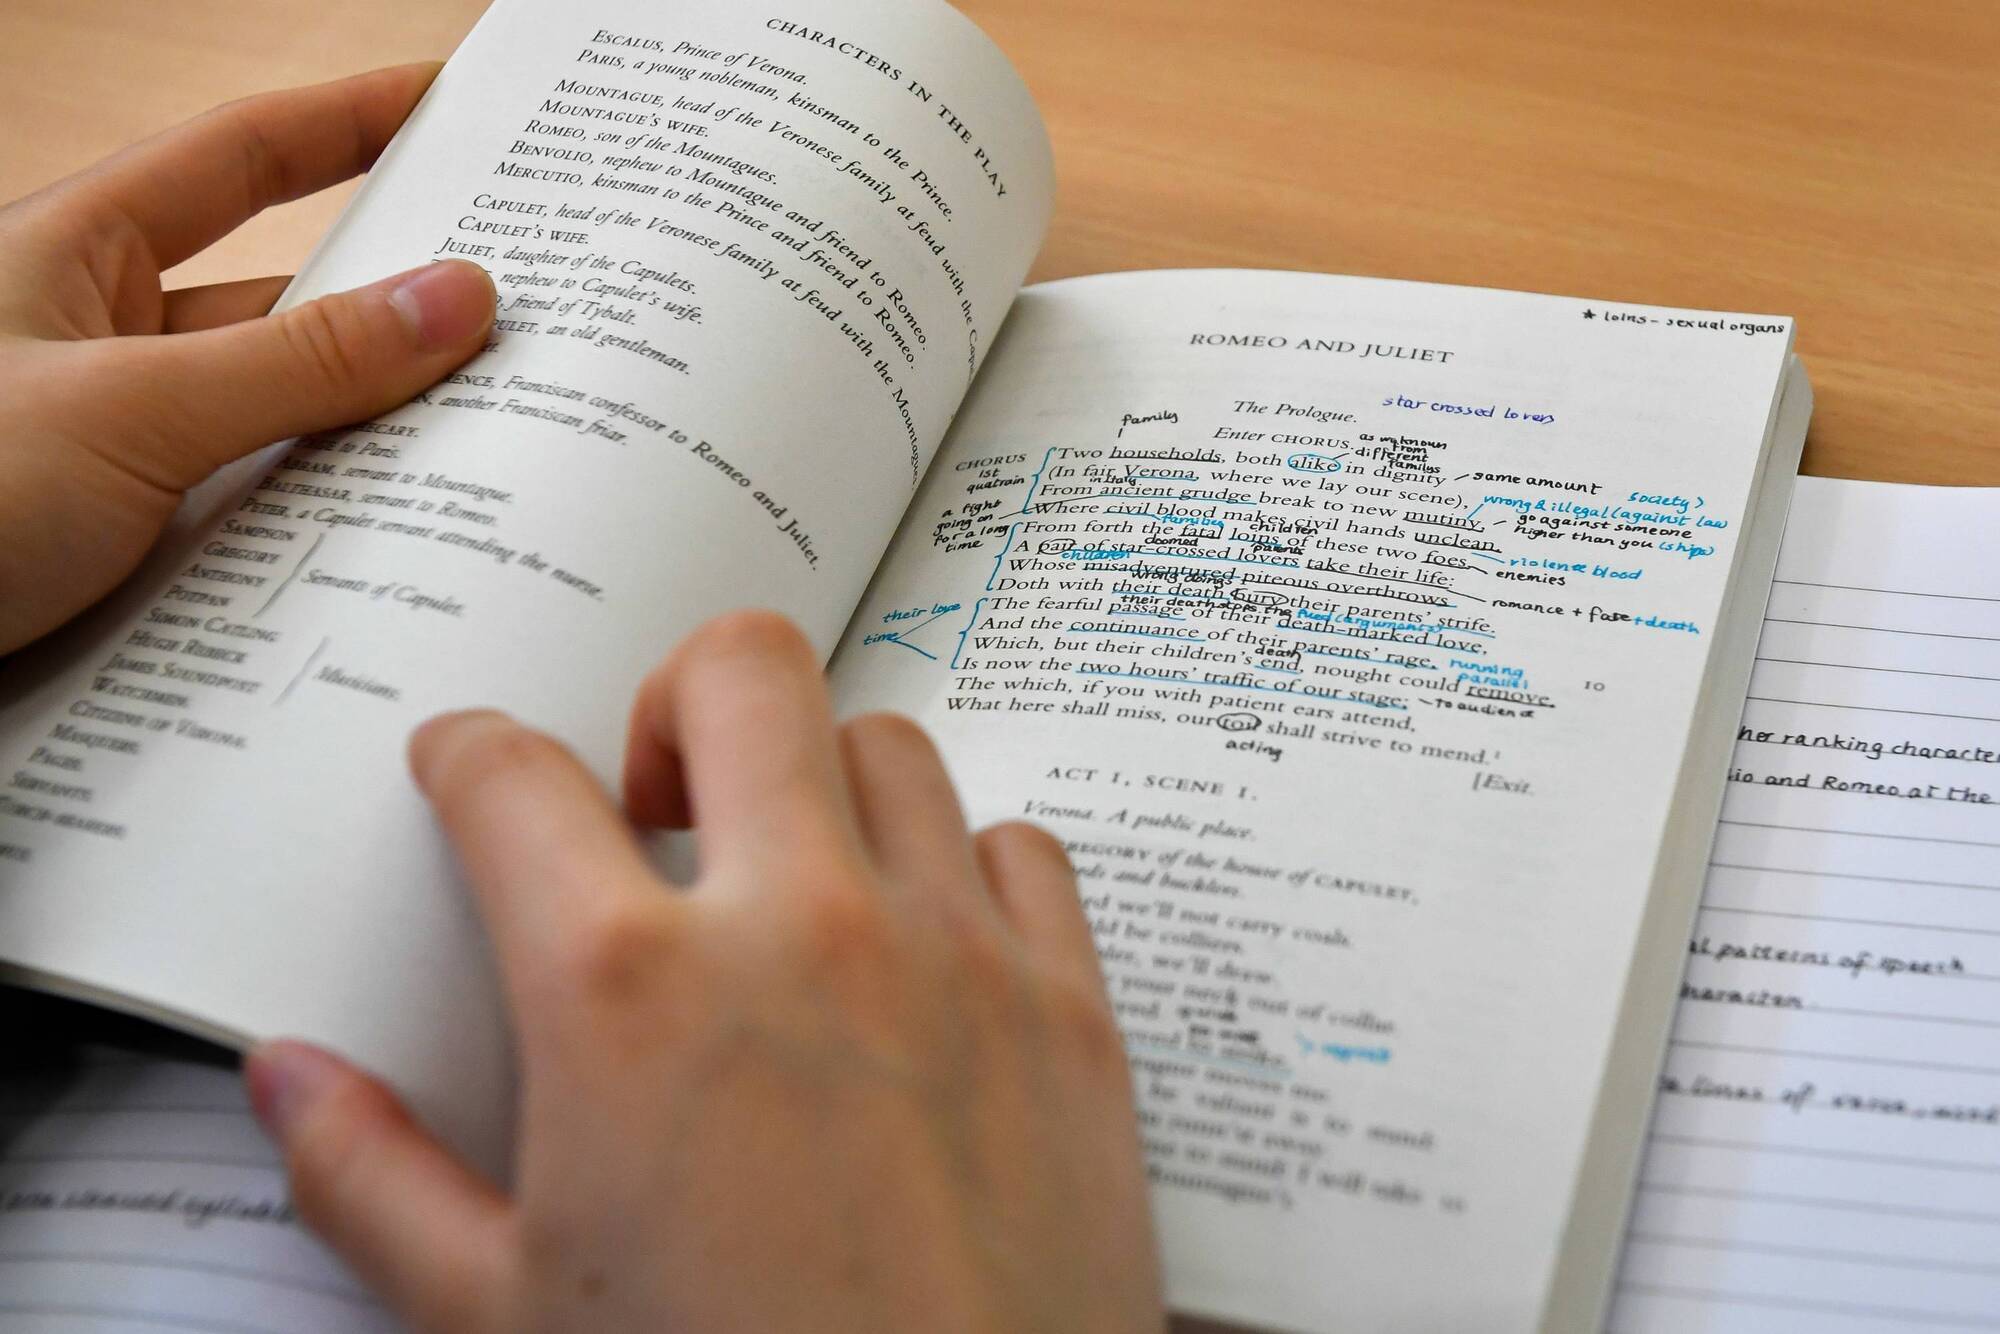 CHARACTERS IN THE PLAY
ESCALUS, Prince of Verona.
PARIS, a young nobleman, kinsman to the Prince.
MOUNTAGUE, head of the Veronese family at feud with the
MOUNTAGUE'S WIFE.
ROMEO, son of the Mountagues.
BENVOLIO, nephew to Mountague and friend to Romeo.
MERCUTIO, kinsman to the Prince and friend to Romeo.
CAPULET, head of the Veronese family at feud with the Mountagues.
CAPULET'S WIFE.
JULIET, daughter of the Capulets.
nephew to Capulet's wife.
friend of Tybalt.
an old gentleman.
Franciscan confessor to Romeo and Juliet.
another Franciscan friar.
to Paris.
ABRAM, servant to Mountague.
BALTHASAR, servant to Romeo.
PETER, a Capulet servant attending the nurse.
SAMPSON
GREGORY
ANTHONY
POTPAN
Servants of Capulet.
SIMON CATLING
HUGH REBECK
JAMES SOUNDPOST
Musicians.
WATCHMEN.
CITIZENS OF VERONA.
MASQUERS.
PAGES.
SERVANTS.
* loins - sexual organs
ROMEO AND JULIET
star crossed lovers
The Prologue.
family
Enter CHORUS.
different
familys
CHORUS
1st
quatrain
Two households, both alike in dignity
same amount
(In fair Verona, where we lay our scene),
in Italy
From ancient grudge break to new mutiny,
wrong & illegal (against law
society)
go against someone
higher than you (ships)
a fight
going on
for a long
time
Where civil blood makes civil hands unclean.
violence blood
families
children
From forth the fatal loins of these two foes
enemies
doomed
parents
A pair of star-crossed lovers take their life:
children
Whose misadventured piteous overthrows
romance + fate + death
wrong doings
Doth with their death bury their parents' strife.
their death stops the feud (arguments)
their love
time
The fearful passage of their death-marked love,
And the continuance of their parents' rage,
running
parallel
death
Which, but their children's end, nought could remove,
10
Is now the two hours' traffic of our stage;
to audience
The which, if you with patient ears attend,
What here shall miss, our toil shall strive to mend.¹
acting
[Exit.
ACT I, SCENE I.
Verona. A public place.
GREGORY of the house of CAPULET,
and bucklers.
we'll not carry coals.
be colliers.
we'll draw.
your neck out of collar
ranking character
and Romeo at the
patterns of speech